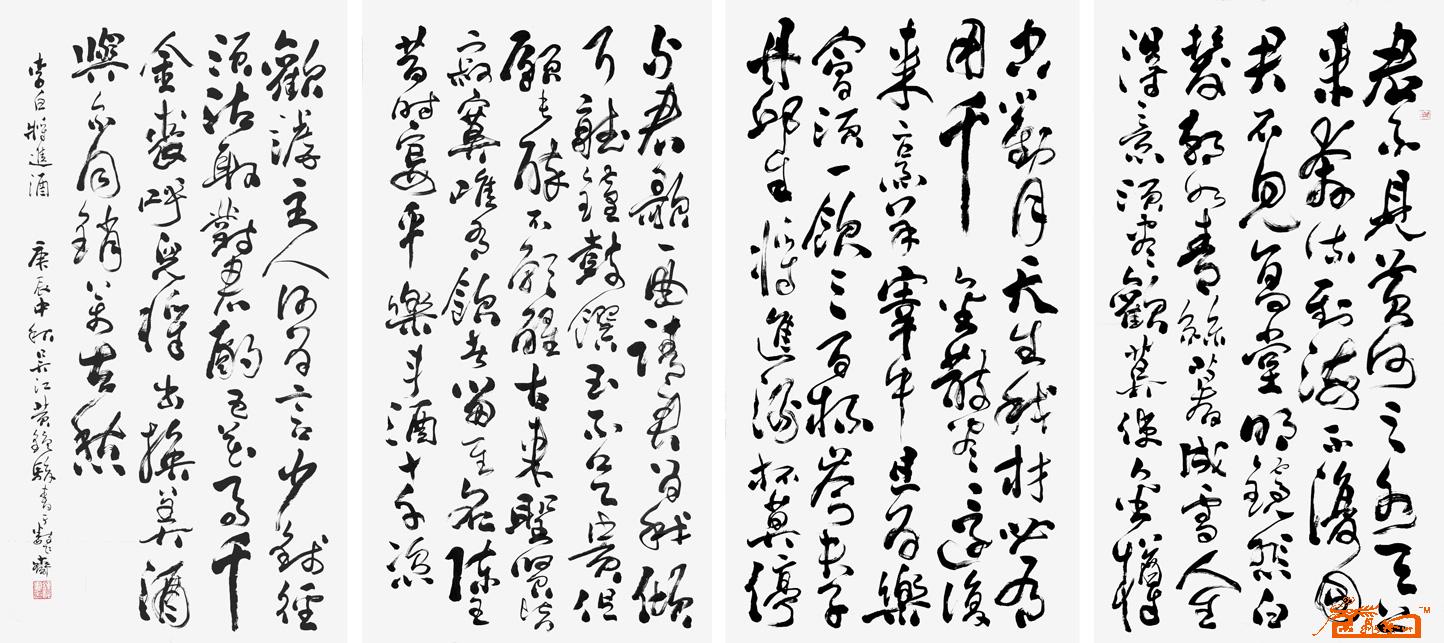 君不見黃河之水天上
來奔流到海不復回
君不見高堂明鏡悲白
髮朝如青絲暮成雪人生
得意須盡歡莫使金樽
空對月天生我材必有
用千金散盡還復
來烹羊宰牛且為樂
會須一飲三百杯岑夫子
丹邱生將進酒杯莫停
與君歌一曲請君為我傾
耳聽鐘鼓饌玉不足貴但
願長醉不願醒古來聖賢皆
寂寞唯有飲者留其名陳王
昔時宴平樂斗酒十千恣
歡謔主人何為言少錢徑
須沽取對君酌五花馬千
金裘呼兒將出換美酒
與爾同銷萬古愁
李白將進酒 庚辰中秋吳江黃